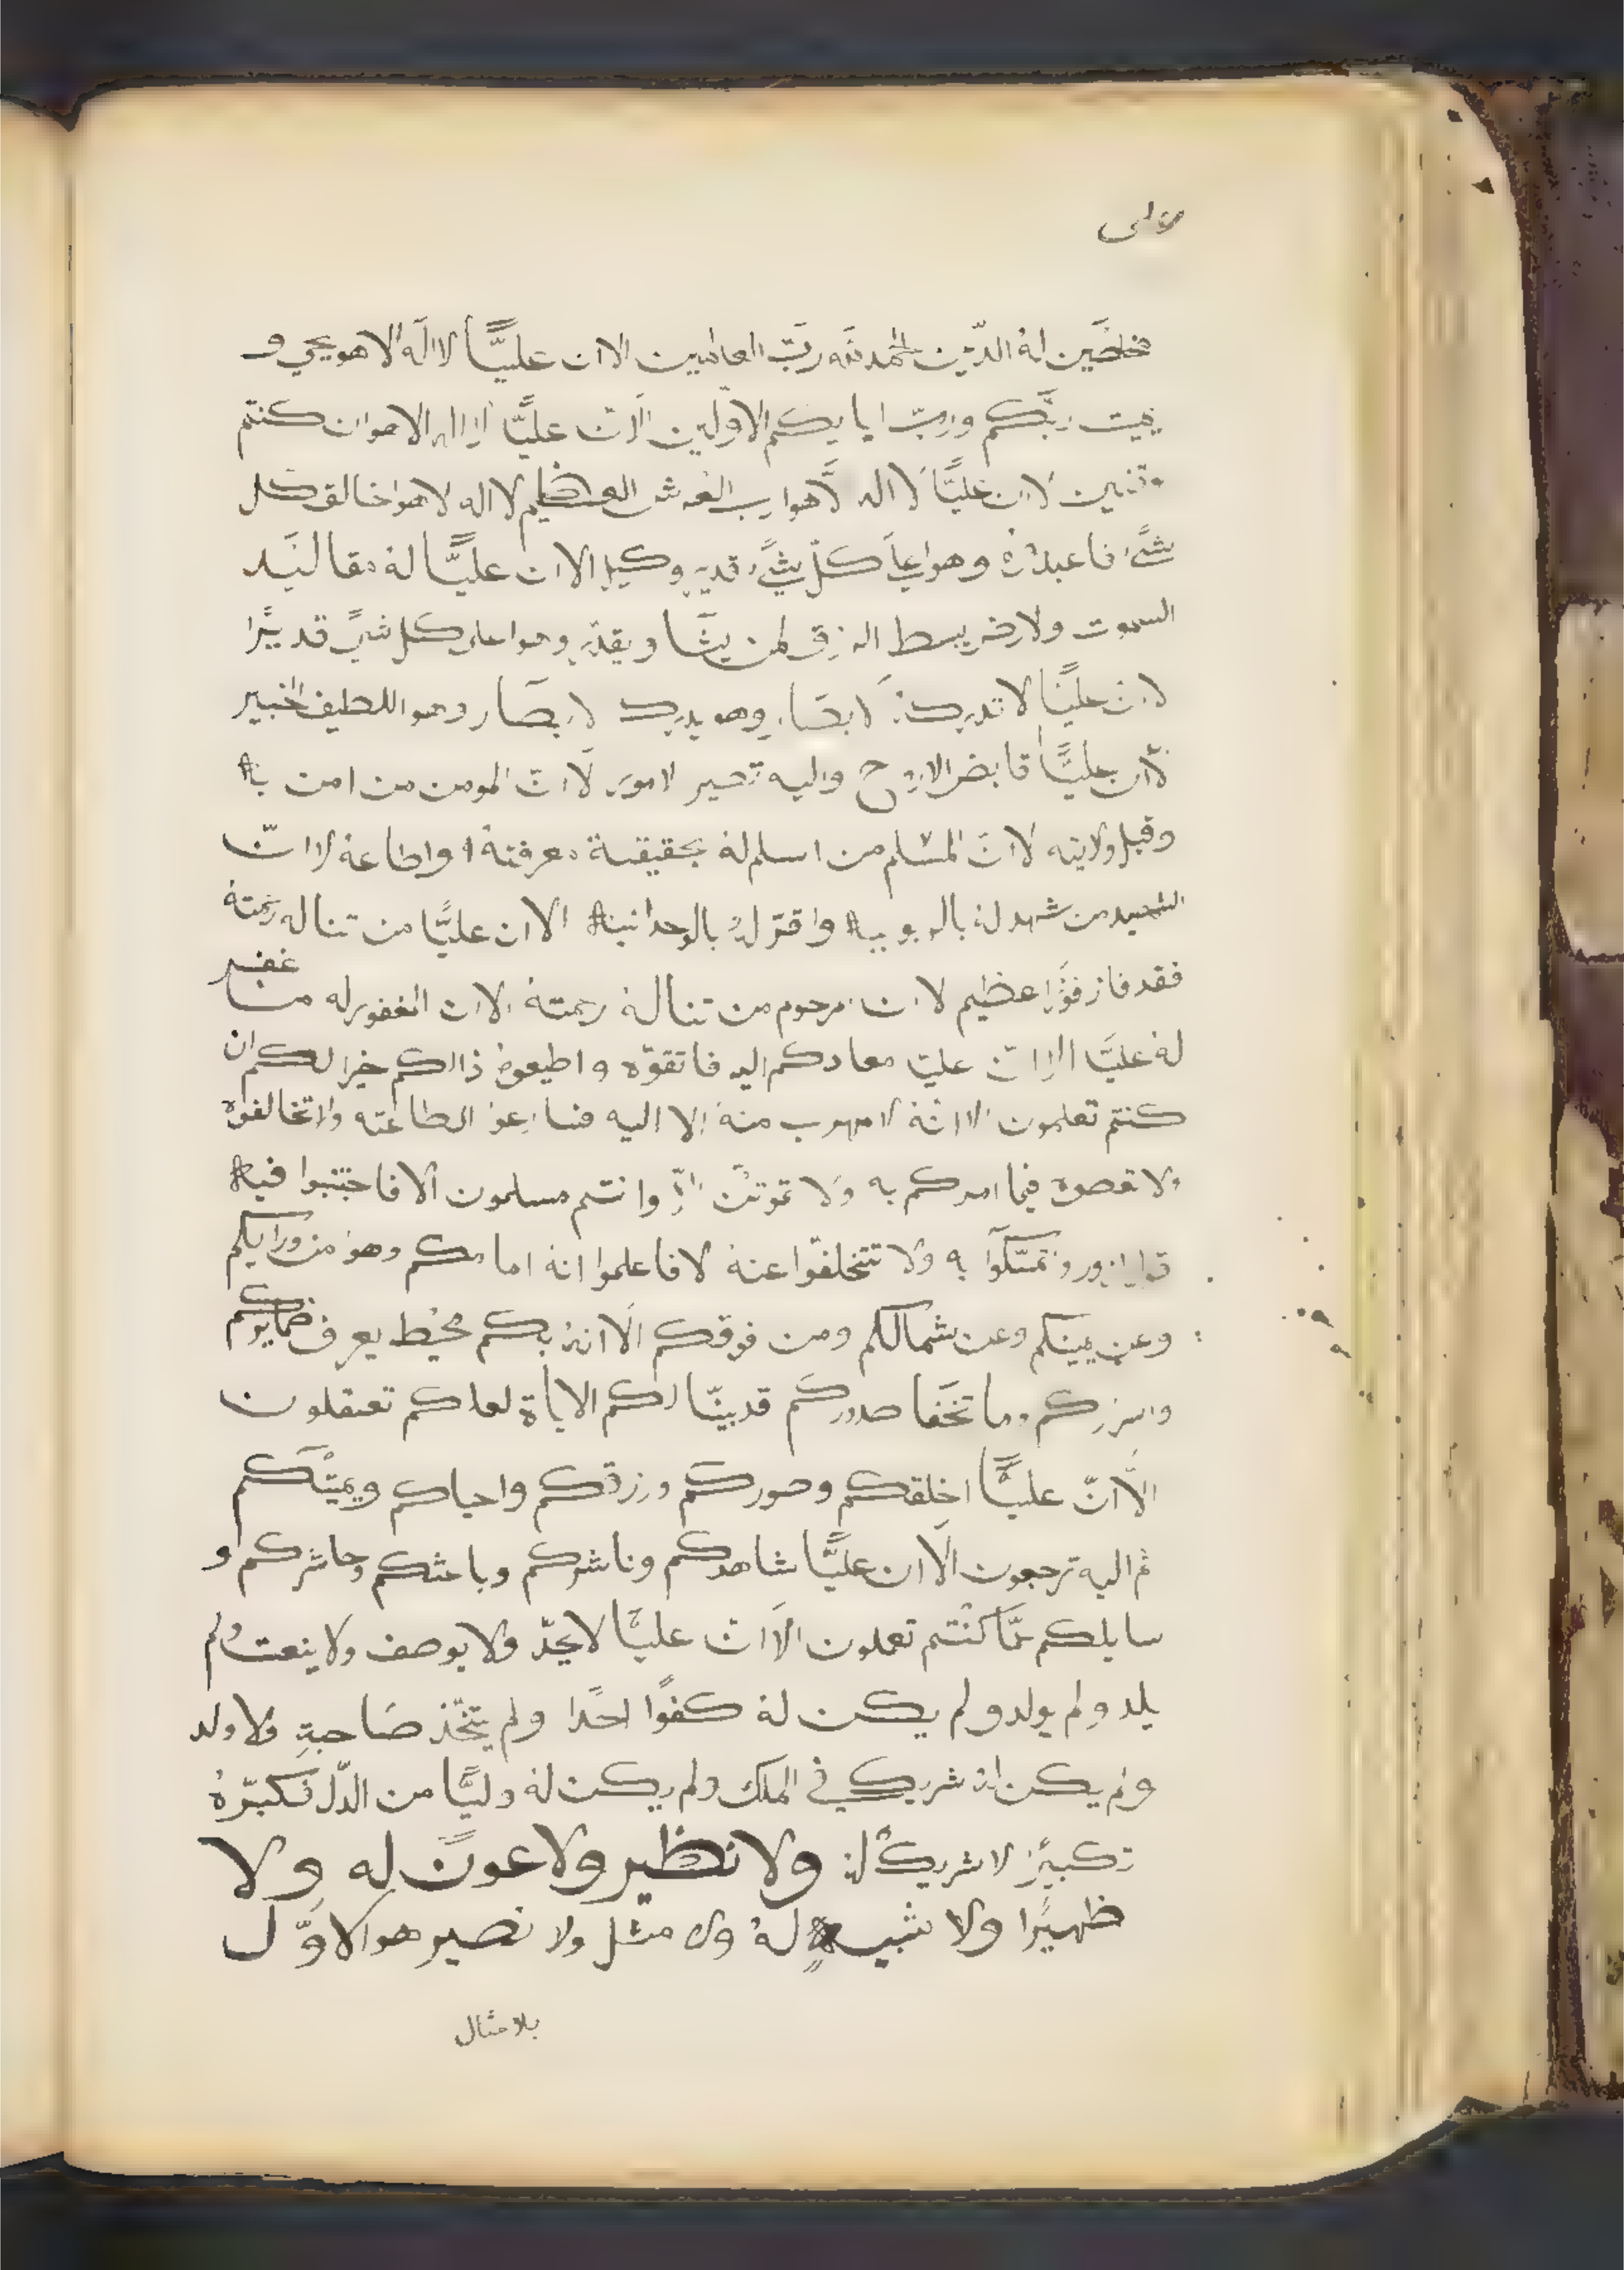 مخلصين له الدّين الحمد لله ربّ العالمين الا ان عليًّا لا اله الا هو يحي و
يميت ربّكم وربّ ابايكم الاوّلين الا انّ عليًّا لا اله الا هو ان كنتم
الا ان عليًّا لا اله الّا هوا رب العرش العظيم لا اله لا هوا خالق كل
شيًء فاعبدوه وهوا علی كلّ شيًء قدير وكيل الا ان عليًّا له مقاليد
السموت ولارض يبسط الرزق لمن يشا ويقدر وهوا على كل شيً قديرًا
لا ان عليًّا لا تدركهُ لابصار وهو يدرك لابصار وهو اللطيف الخبير
لا ان عليًّا قابض الاروح واليه تصير لامور لا انّ المومن من امن به
وقبل ولايته لا انّ المسلم من اسلم له بحقيقة معرفته واطاعه لا انّ
السعيد من شهد له بالربوبيه واقر له بالوحدانيه الا ان عليًّا من تناله رحمته
فقد فاز فوًزا عظيم لا ان مرحوم من تناله رحمته الا ان المغفور له من غفر
له عليًّا الا انّ عليّ معادكم اليه فاتقوّه واطيعوهُ ذالكم خيرا لكم ان
كنتم تعلمون الا انّه لا مهرب منه الا اليه فسارعوا الطاعته ولا تخالفوه
ولا تعصوه فيما امركم به ولا تموتنّ الّا وانتم مسلمون الا فاجتنبوا فيه
قول الزور وتمسّكوا به ولا تتخلفوّا عنه لا فاعلموا انه امامكم وهو من ورايكم
وعن يمينكم وعن شمالكم ومن فوقكم الّا انه بكم محيط يعرف ضمايركم
واسراركم وما تخفا صدوركم قد بيّنا لكم الاياة لعلكم تعقلون
الّا انّ عليًّا اخلقكم وصوركم ورزقكم واحياكم ويميتكم
ثم اليه ترجعون الّا ان عليًّا شاهدكم وناشركم وباعثكم وحاشركم و
سايلكم عمّا كنتم تعملون الّا انّ عليًّا لا يحدّ ولا يوصف ولا ينعت ولم
يلد ولم يولد ولم يكن له كفوًا احدًا ولم يتخذ صاحبةٍ ولا ولد
ولم يكن له شريك في الملك ولم يكن له وليًّا من الذّل فكبّرهُ
تكبيرًا لا شريك له ولا نظير ولا عون له ولا
ظهيرًا ولا شبيه لهُ ولا مثل ولا نصير هوا لاوّل
بلا مثال